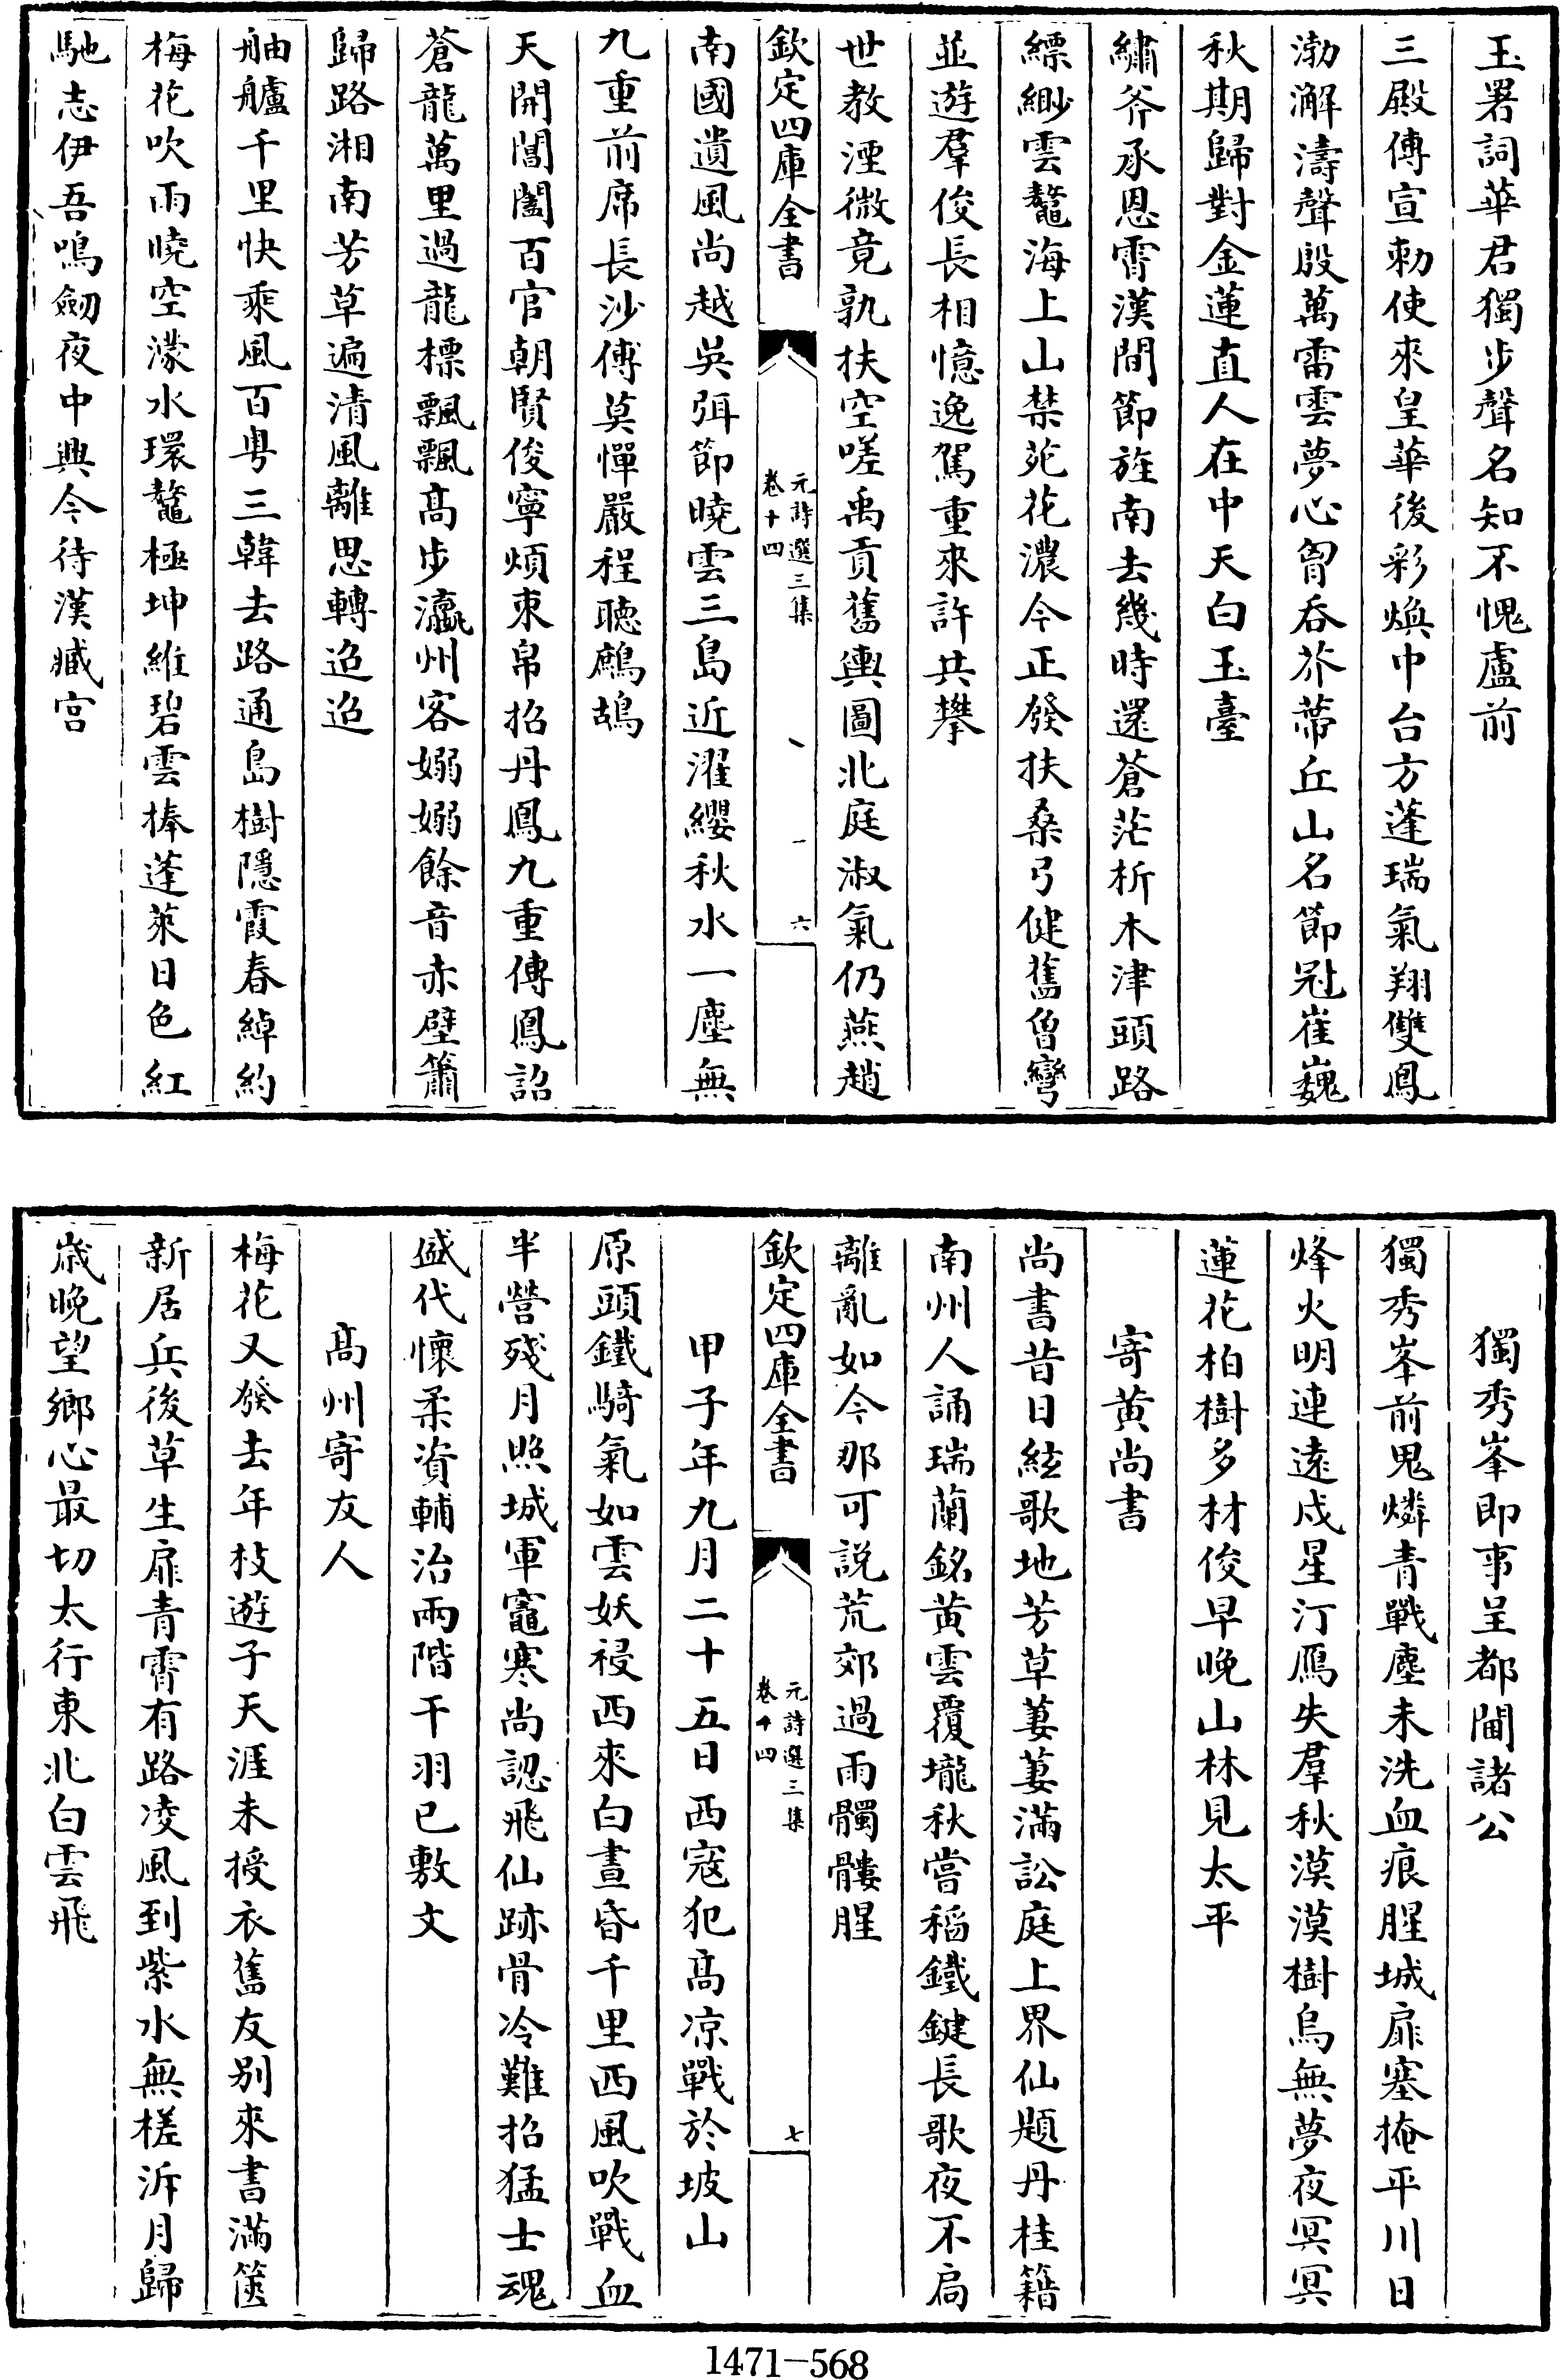 玉署詞華君獨步聲名知不愧盧前
三殿傳宣勅使來皇華後彩煥中台方蓬瑞氣翔雙鳳
渤澥濤聲殷萬雷雲夢心胷吞芥蔕丘山名節冠崔巍
秋期歸對金蓮直人在中天白玉臺
繡斧承恩霄漢間節旌南去幾時還蒼茫析木津頭路
縹緲雲鼇海上山禁苑花濃今正發扶桑弓健舊曾彎
並遊羣俊長相憶逸駕重來許共攀
世教湮微竟孰扶空嗟禹貢舊輿圖北庭淑氣仍燕趙
欽定四庫全書
元詩選三集
卷十四
六
南國遺風尚越吳弭節曉雲三島近濯纓秋水一塵無
九重前席長沙傅莫憚嚴程聽鷓鴣
天開閶闔百官朝賢俊寧煩束帛招丹鳳九重傳鳳詔
蒼龍萬里過龍標飄飄高步瀛州客嫋嫋餘音赤壁簫
歸路湘南芳草遍清風離思轉迢迢
舳艫千里快乘風百粤三韓去路通島樹隱霞春綽約
梅花吹雨曉空濛水環鼇極坤維碧雲捧蓬萊日色紅
馳志伊吾鳴劒夜中興今待漢臧宫
獨秀峯即事呈都閫諸公
獨秀峯前鬼燐青戰塵未洗血痕腥城扉塞掩平川日
烽火明連遠戍星汀鴈失羣秋漠漠樹烏無夢夜冥冥
蓮花柏樹多材俊早晚山林見太平
寄黄尚書
尚書昔日絃歌地芳草萋萋滿訟庭上界仙題丹桂籍
南州人誦瑞蘭銘黄雲覆壠秋嘗稻鐵鍵長歌夜不扃
離亂如今那可説荒郊過雨髑髏腥
欽定四庫全書
元詩選三集
卷十四
七
甲子年九月二十五日西寇犯高凉戰於坡山
原頭鐵騎氣如雲妖祲西來白晝昏千里西風吹戰血
半營殘月照城軍竈寒尚認飛仙跡骨冷難招猛士魂
盛代懷柔資輔治兩階干羽已敷文
高州寄友人
梅花又發去年枝遊子天涯未授衣舊友别來書滿篋
新居兵後草生扉青霄有路凌風到紫水無槎泝月歸
歳晚望鄉心最切太行東北白雲飛
1471-568